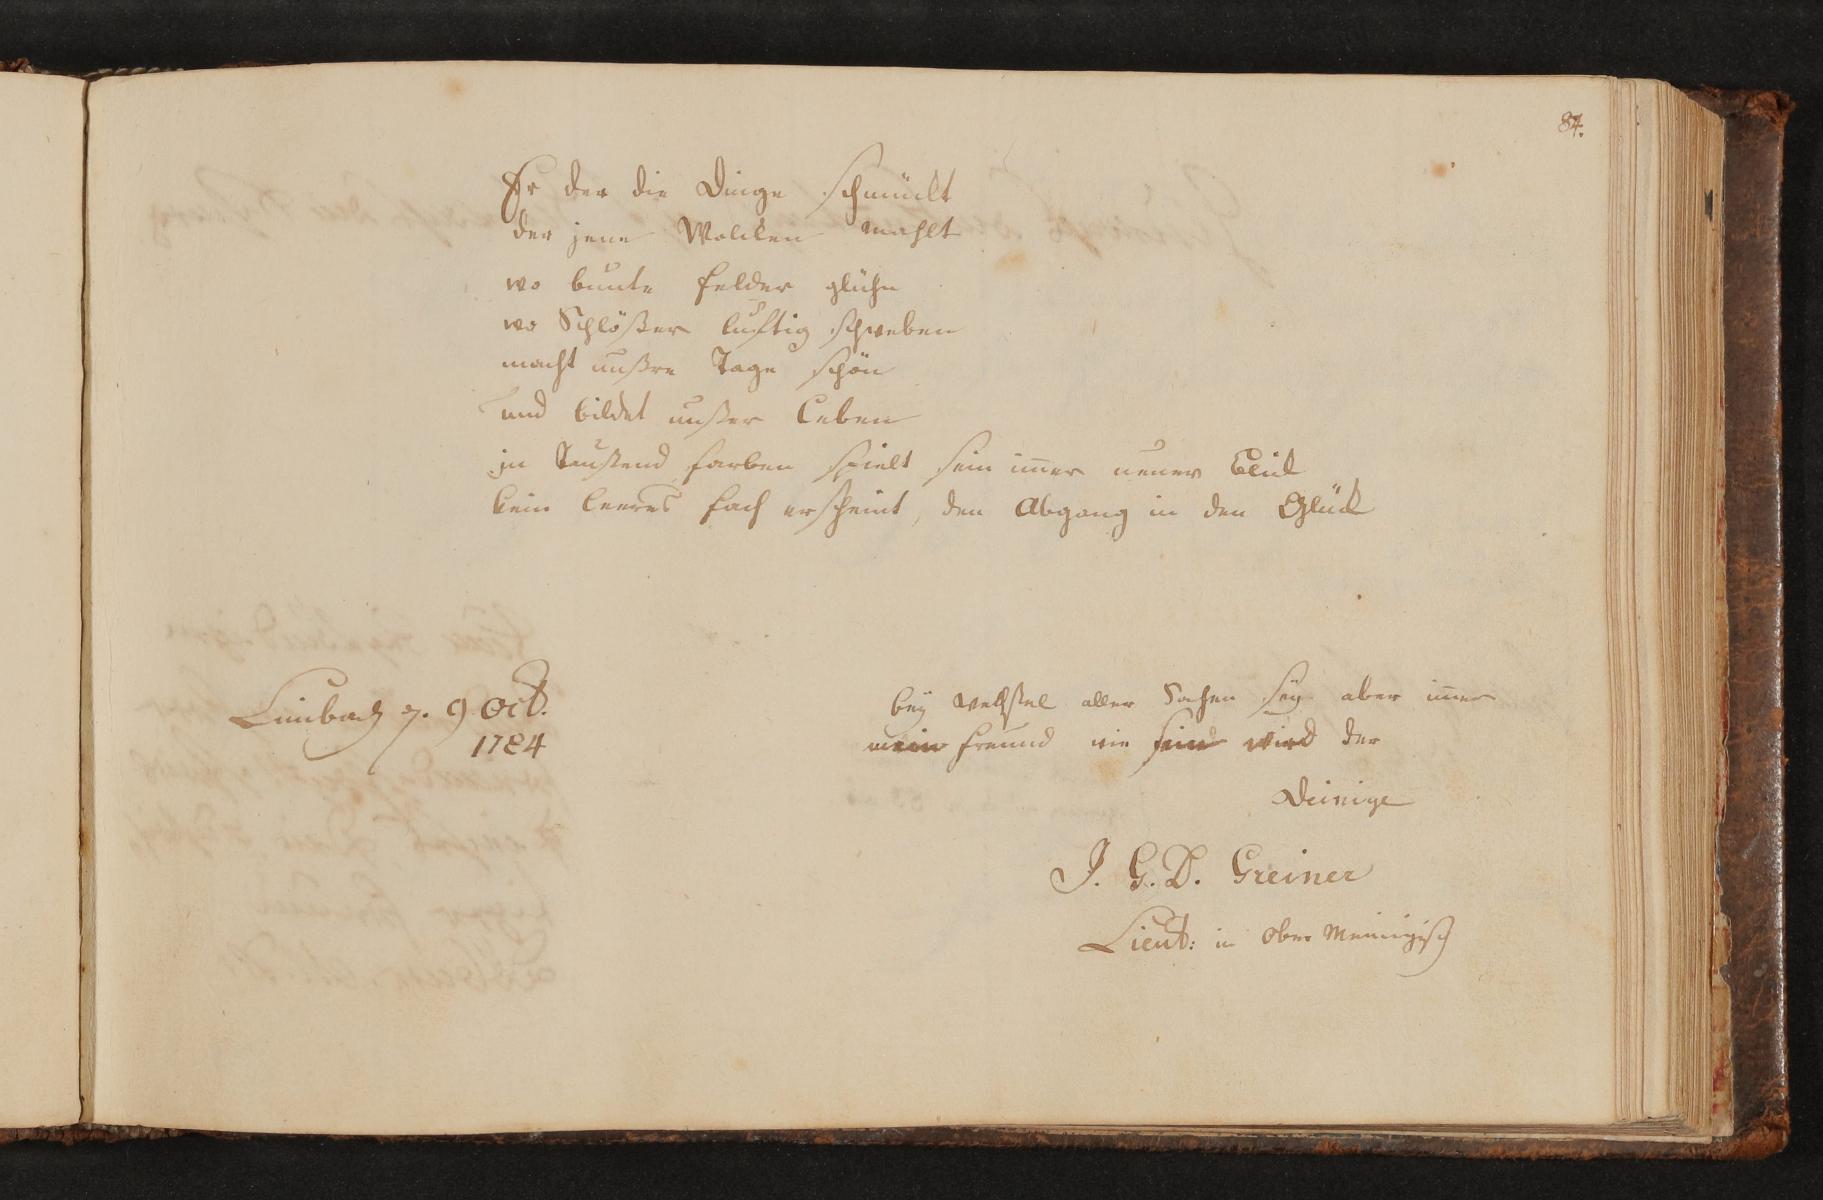 84.
Er der die Dinge schmückt
der jene Wolcken mahlt
wo bunte felder glühn
wo Schlößer luftig schweben
macht unßre Tage schön
und bildet unßer Leben
in Taußend farben spielt sein im̅er neuer Blick
kein leeres fach erscheint, den Abgang in den Glück
Limbach 9 Oct.
1784
bey Wechßel aller Sachen sey aber im̅er
mein freund wie sein wird der
Deinige
J. G. D. Greiner
Lieut: in Ober Meiningisch